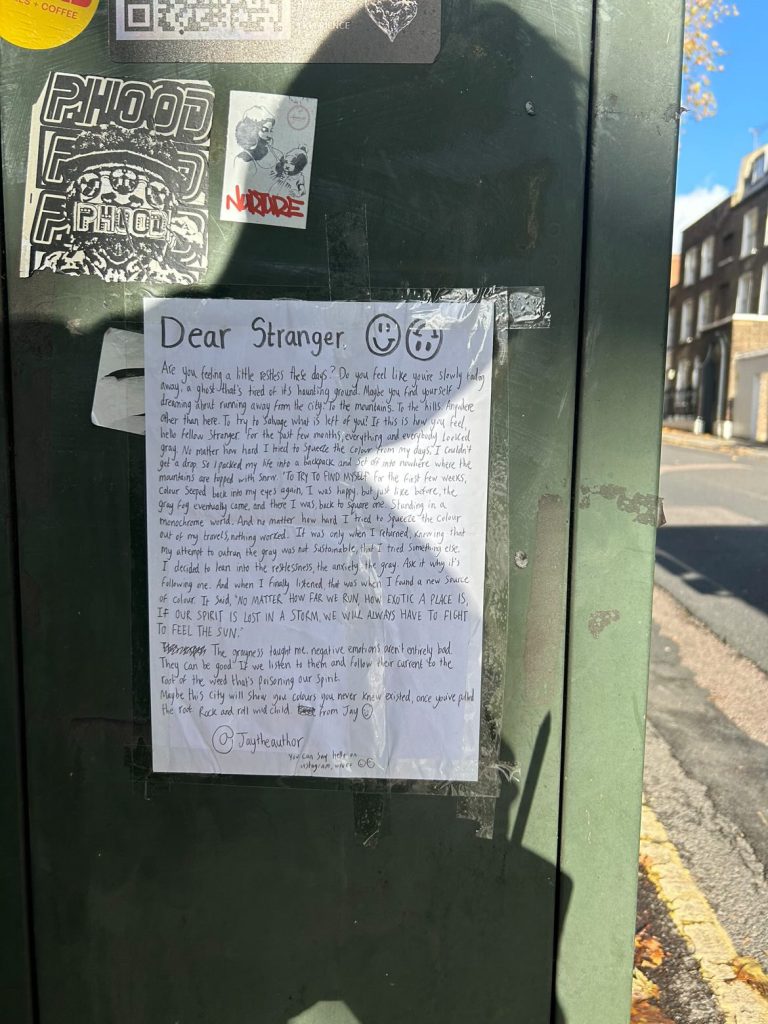 LS + COFFEE
PHOOD
PHOOD
NURTURE
Dear Stranger.
Are you feeling a little restless these days? Do you feel like you're slowly fading
away, a ghost that's tired of it's haunting ground. Maybe you find yourself
dreaming about running away from the city. To the mountains. To the hills. Anywhere
other than here. To try to Salvage what is left of you? If this is how you feel,
hello fellow Stranger. For the past few months, everything and everybody Looked
gray. No matter how hard I tried to Squeeze the colour from my days, I couldn't
get a drop. So I packed my life into a backpack and set off into nowhere where the
mountains are tipped with snow. "TO TRY TO FIND MYSELF" For the first few weeks,
Colour Seeped back into my eyes again, I was happy, but just like before, the
gray fog eventually came, and there I was, back to square one. Standing in a
monochrome world. And no matter how hard I tried to Squeeze the colour
out of my travels, nothing worked. It was only when I returned, knowing that
my attempt to outrun the gray was not Sustainable, that I tried something else.
I decided to lean into the restlessness, the anxiety, the gray. Ask it why it's
following me. And when I finally listened, that was when I found a new Source
of colour. It Said, "NO MATTER HOW FAR WE RUN, HOW EXOTIC A PLACE IS,
IF OUR SPIRIT IS LOST IN A STORM, WE WILL ALWAYS HAVE TO FIGHT
TO FEEL THE SUN."
The grayness taught me. negative emotions aren't entirely bad.
They can be good If we listen to them and follow their current to the
root of the weed that's poisoning our Spirit.
Maybe this city will show you colours you never knew existed, once you've pulled
the root. Rock and roll wild child. from Jay
@ Jaytheauthor
you can say hello on
instagram,